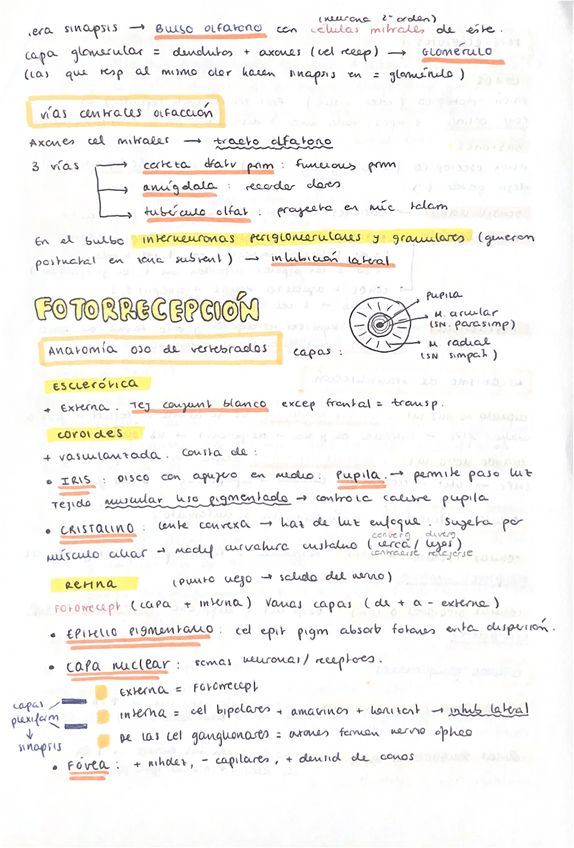 (neurona 2º orden)
.era sinapsis → Bulbo olfatorio con células mitrales de este.
capa glomerular = dendritas + axones (cel recep) → GLOMÉRULO
(las que resp al mismo olor hacen sinapsis en = glomérulo)
vías centrales olfacción
Axones cel mitrales → tracto olfatorio
3 vías → corteza olfatv prim : funciones prim
→ amígdala : recordar olores
→ tubérculo olfat : proyecta en núc talam
En el bulbo interneuronas periglomerulares y granulares (generan
postnatal en zona subvent) → inhibición lateral
FOTORRECEPCIÓN
Pupila
M. circular
(SN. parasimp)
M. radial
(SN simpat)
Anatomía ojo de vertebrados capas :
Esclerótica
+ Externa. Tej conjunt blanco excep frontal = transp.
coroides
+ vascularizada. Consta de :
• IRIS : Disco con agujero en medio : Pupila. → permite paso luz
Tejido muscular liso pigmentado → controla calibre pupila
• CRISTALINO : lente convexa → haz de luz enfoque. Sujeta por
converg diverg
músculo ciliar → modif curvatura cristalino (cerca / lejos)
contraerse relajarse
Retina (punto ciego → salida del nervio)
Fotorrecept (capa + interna) Varias capas (de + a - externa)
• EPITELIO PIGMENTARIO : cel epit pigm absorb fotones evita dispersión.
• CAPA NUCLEAR : somas neuronas / receptores.
Externa = Fotorrecept
capas plexiform ↓ sinapsis
Interna = cel bipolares + amacrinas + horizont → inhib lateral
De las cel ganglionares = axones forman nervio óptico
• FÓVEA : + nitidez, - capilares, + densid de conos